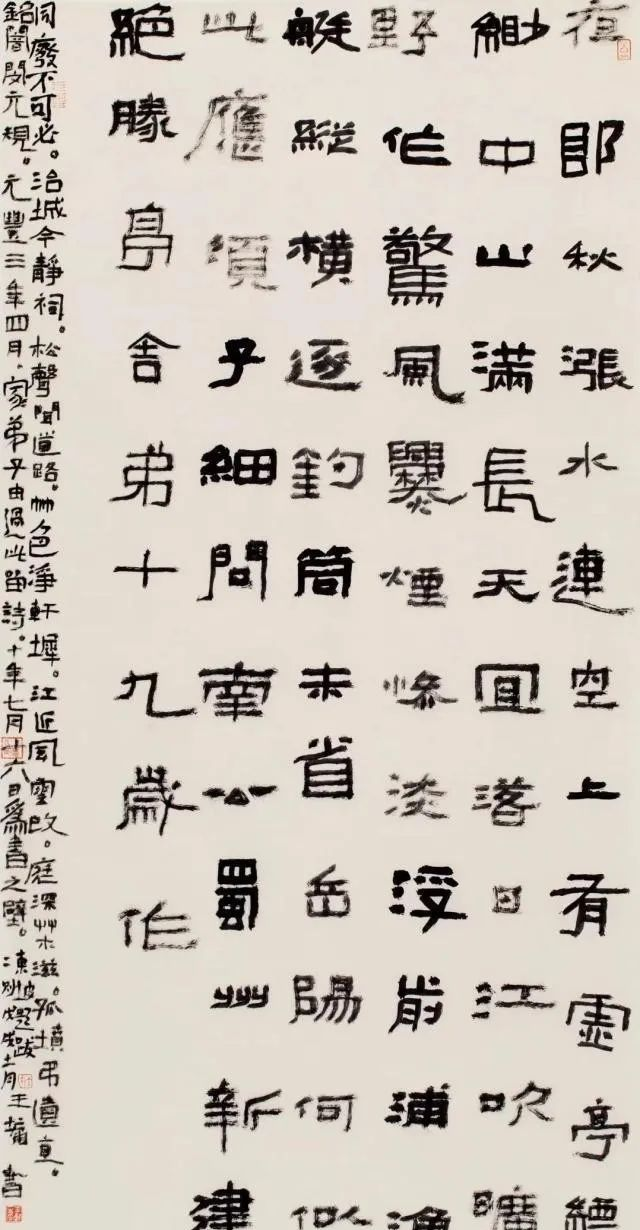 夜郎秋漲水連空上有虛亭縹
緲中山滿長天宜落日江吹曠
野作驚風爨煙慘淡浮前浦漁
艇縱橫逐釣筒未省岳陽何似
此應須子細問南公蜀州新建
絕勝亭舍弟十九歲作
廢不可必。治城今靜祠。松聲聞道路。竹色淨軒墀。江近風雲改。庭深草木滋。孤墳弔遺直。
銘闇閔元規。元豐三年四月。家弟子由過此留詩。十年七月十六日為書之壁。東坡題跋 十一月王鏞書